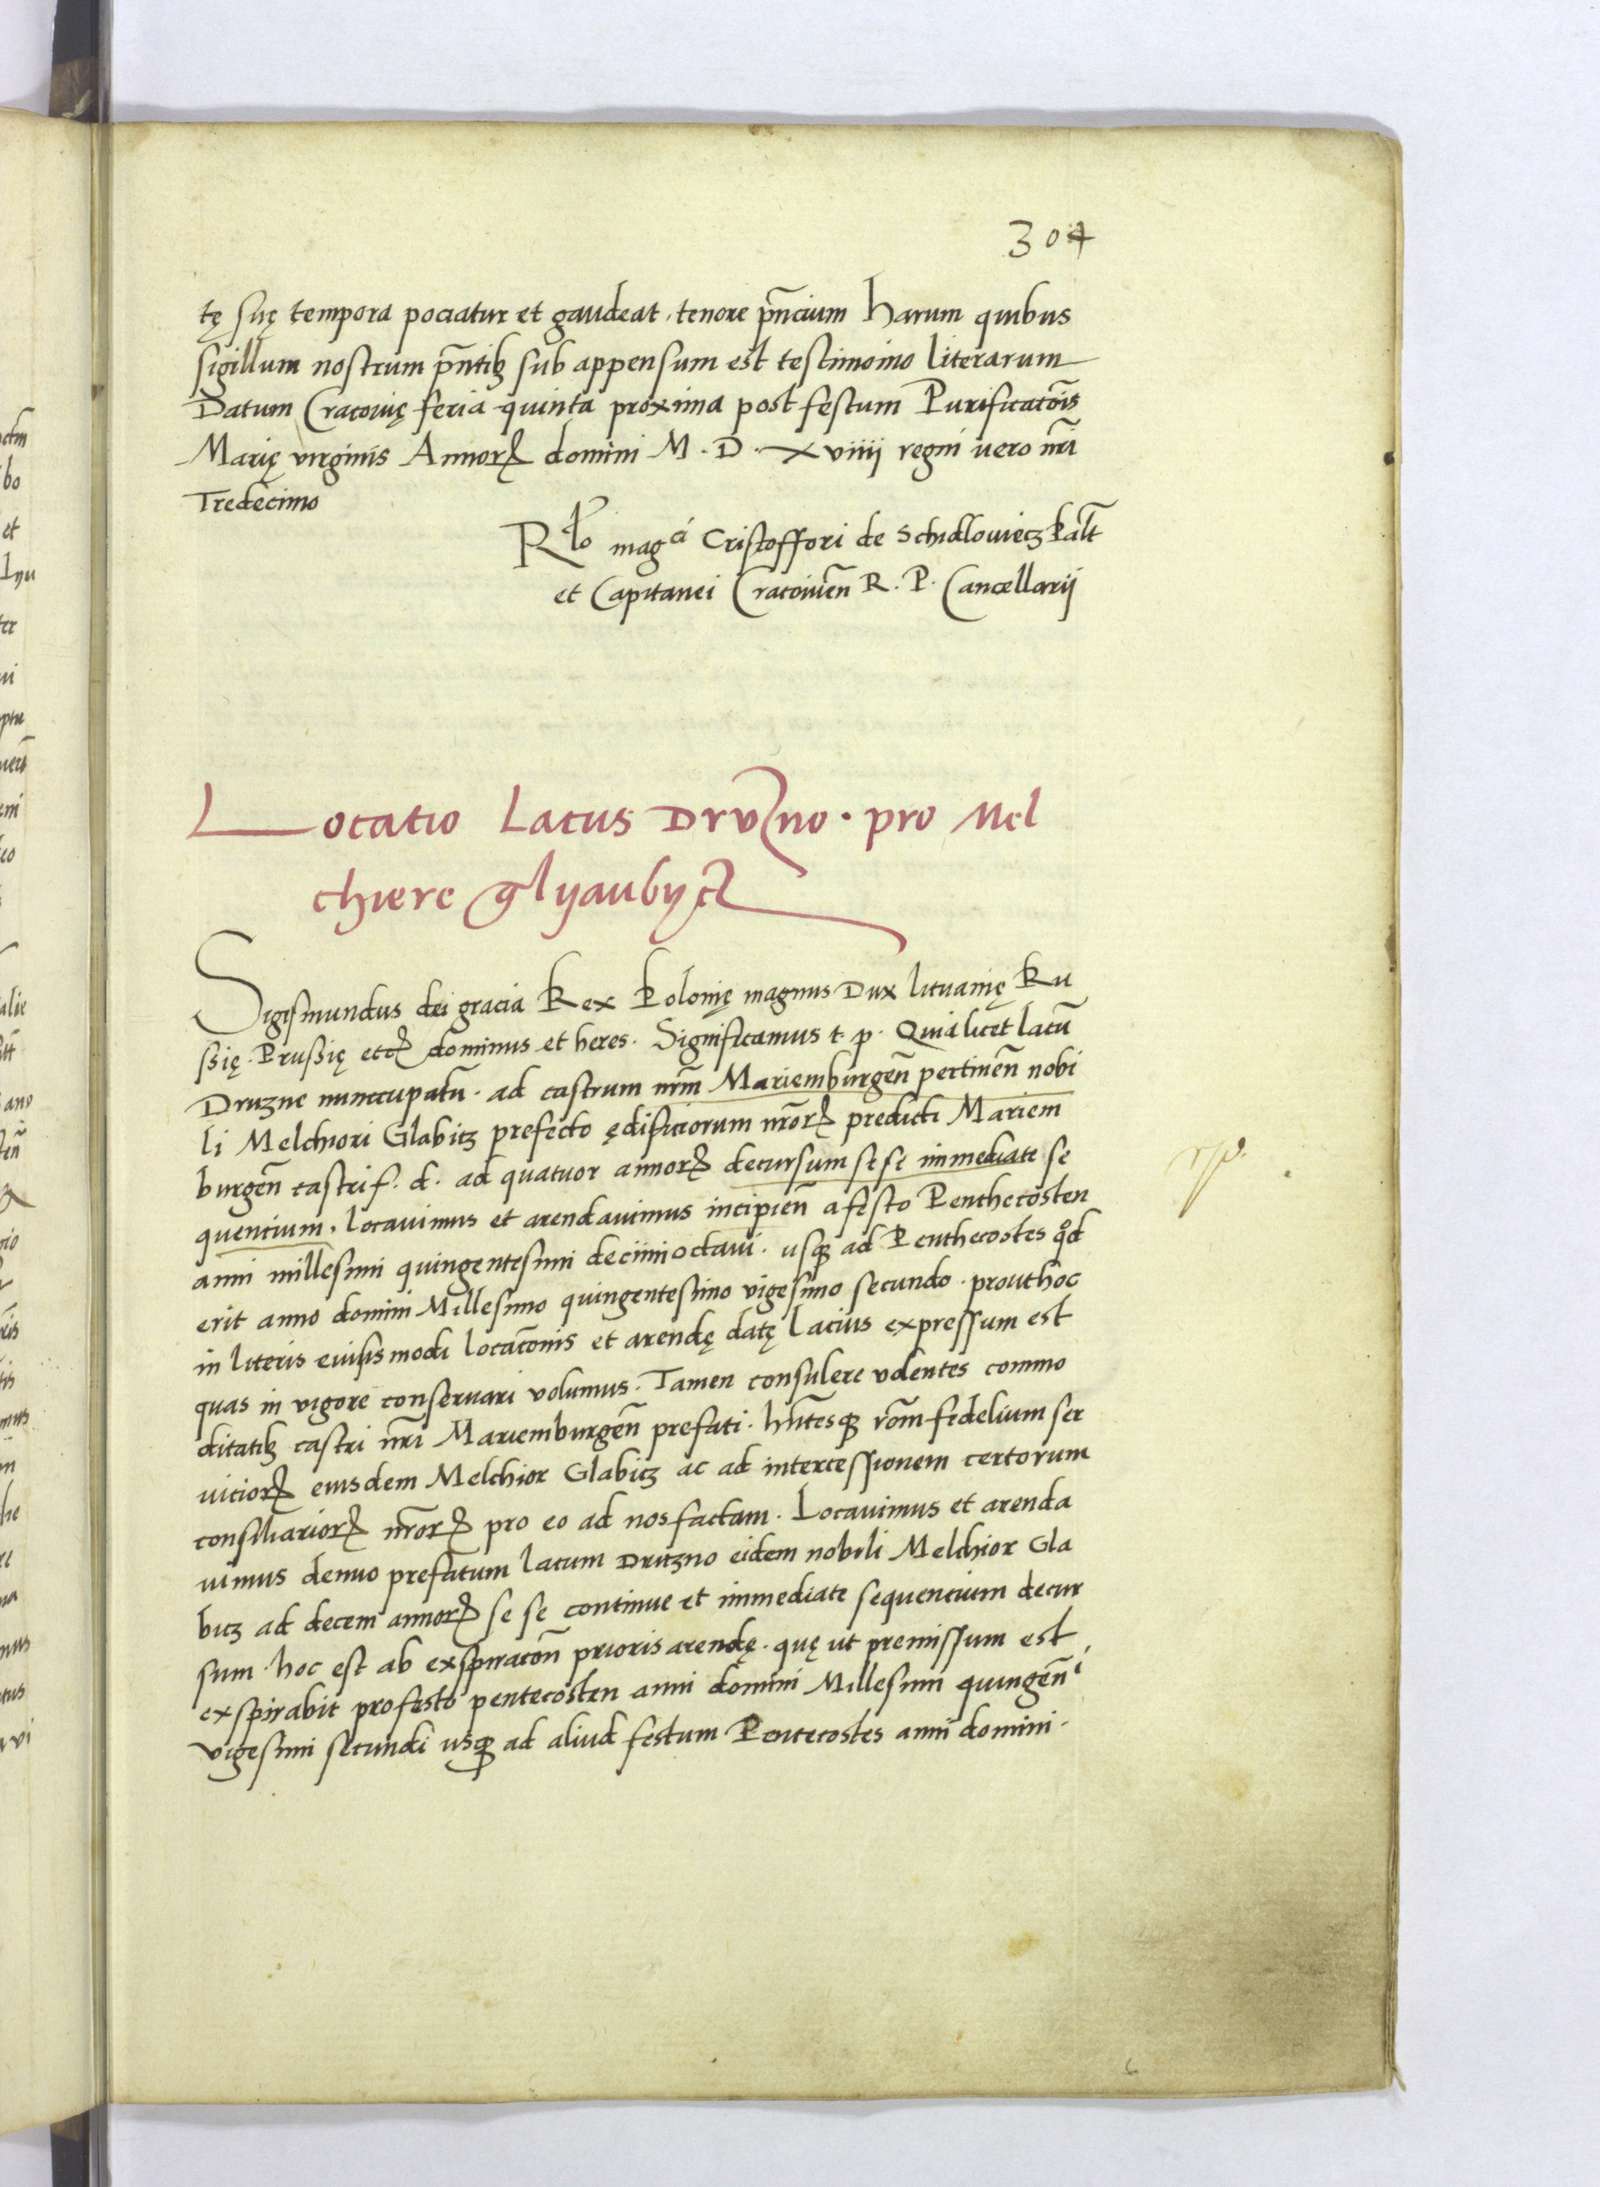 304
tę suę tempora pociatur et gaudeat, tenore pn̄cium harum quibus
sigillum nostrum pn̄tibꝫ sub appensum est testimoino literarum
Datum Cracovię feria quinta proxima post festum Purificatōis
Marię virginis Annorꝝ domini M. D. xviiij regni vero nr̄i
Tredecimo
Rlo magci Cristoffori de Schidloviecz Palt̄
et Capitanei Cracovien̄ R. P. Cancellarij
Locatio Lacus Druzno. pro Mel
chiere glyaubycz
Sigismundus dei gracia Rex Polonię magnus Dux lituanię Ru
ssię. Prussię etcꝫ dominus et heres. Significamus t. p. Quia licet lacū
Druzne nunccupatū. ad castrum nrm̄ Mariemburgen̄ pertinen̄ nobi
li Melchiori Glabicz prefecto ędificiorum nr̄orꝝ predicti Mariem
burgen̄ castri f. d. ad quatuor annorꝝ decursum sese immediate se
quencium, locavimus et arendavimus incipien̄ a festo Penthecosten
anni millesimi quingentesimi decimioctavi. usqꝫ ad Penthecostes qd̊
erit anno domini Millesimo quingentesimo vigesimo secundo. prout hoc
in literis eiusmodi locatōnis et arendę datę lacius expressum est
quas in vigore conservari volumus. Tamen consulere volentes commo
ditatibꝫ castri nr̄i Mariemburgen̄ prefati. hn̄tesqꝫ rōm fidelium ser
viciorꝝ eiusdem Melchior Glabicz ac ad intercessionem certorum
consiliariorꝝ nr̄orꝝ pro eo ad nos factam. Locavimus et arenda
vimus denuo prefatum lacum Druzno eidem nobili Melchior Gla
bicz ad decem annorꝝ se se continue et immediate sequencium decur
sum. hoc est ab exspiratōn prioris arendę. quę ut premissum est
exspirabit pro festo pentecosten anni domini Millesimi quingen̄i
vigesimi secundi usqꝫ ad aliud festum Pentecostes anni domini.